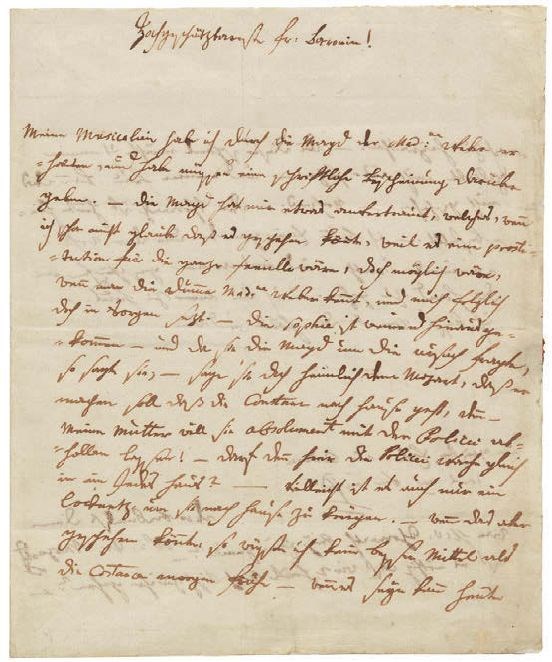 Hochschätzbareste fr: Baronin!
Meine Musicalien habe ich durch die Magd der Mad:me Weber er=
=halten, und habe müssen eine schriftliche bescheinung darüber
geben. — die Magd hat mir etwas anvertraut, welches, wenn
ich schon nicht glaube daß es geschehen könnte, weil es eine prosti=
=tution für die ganze familie wäre, doch möglich wäre,
wenn man die dumme Mad:me Weber kennt, und mich folglich
doch in Sorgen sezt. — die Sophie ist weinend hinaus ge=
=kommen — und da sie die Magd um die ursach fragte,
so sagte sie, — sage sie doch heimlich dem Mozart, daß er
machen soll daß die Constanz nach hause geht, denn —
Meine Mutter will sie absolument mit der Policei ab=
=hollen lassen! — darf denn hier die Policei wache gleich
in ein Jedes haus? — vielleicht ist es auch nur ein
locknetz um sie nach hause zu kriegen. — wenn das aber
geschehen könnte, so wüsste ich kein besser Mittel als
die Constanze morgen frühe — wenns seyn kann heute